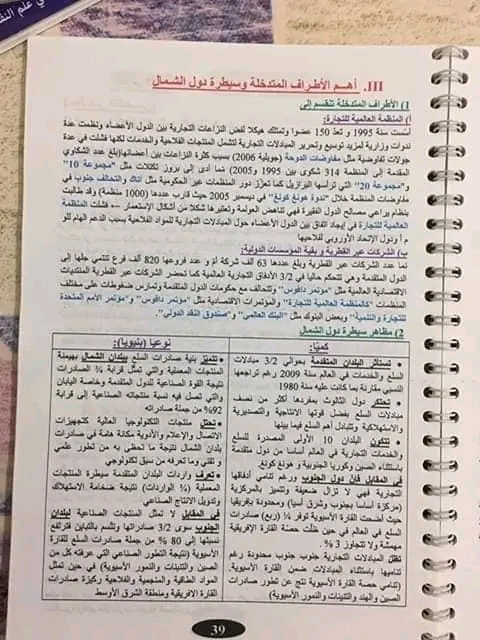 في علم النف
III. أهم الأطراف المتدخلة وسيطرة دول الشمال
1) الأطراف المتدخلة تنقسم إلى
أ) المنظمة العالمية للتجارة:
أسّست سنة 1995 و تعدّ 150 عضوا وتمتلك هيكلا لفض النزاعات التجارية بين الدول الأعضاء ونظمت عدة
ندوات وزارية لمزيد توسيع وتحرير المبادلات التجارية لتشمل المنتجات الفلاحية والخدمات لكنها فشلت في عدة
جولات تفاوضية مثل مفاوضات الدوحة (جويلية 2006) بسبب كثرة النزاعات بين أعضائها(بلغ عدد الشكاوي
المقدمة إلى المنظمة 314 شكوى بين 1995 و2005) مما أدى إلى بروز تكتلات مثل "مجموعة 10"
و"مجموعة 20" التي ترأسها البرازيل كما تعزّز دور المنظمات غير الحكومية مثل أتاك والتحالف جنوب في
مفاوضات المنظمة خلال "ندوة هونغ كونغ" في ديسمبر 2005 حيث قارب عددها (1000 منظمة) وقد طالبت
بنظام يراعي مصالح الدول الفقيرة فهي تناهض العولمة وتعتبرها شكلا من أشكال الإستعمار ← فشلت المنظمة
العالمية للتجارة في إيجاد اتفاق بين الدول الأعضاء حول المبادلات التجارية للمواد الفلاحية بسبب الدعم الهام للو
م أ ودول الإتحاد الأوروبي لفلاحيها
ب) الشركات عبر القطرية و بقية المؤسسات الدولية:
نما عدد الشركات عبر القطرية وبلغ عددها 63 ألف شركة أم و عدد فروعها 820 ألف فرع تنتمي جلها إلى
الدول المتقدمة وهي تتحكم حاليا في 2/3 الأنفاق التجارية العالمية كما تحضر الشركات عبر القطرية المنتديات
الاقتصادية العالمية مثل "مؤتمر دافوس" وتتحالف مع حكومات الدول المتقدمة وتمارس ضغوطات على مختلف
المنظمات "كالمنظمة العالمية للتجارة" والمؤتمرات الاقتصادية مثل "مؤتمر دافوس" و"مؤتمر الأمم المتحدة
للتجارة والتنمية" وبعض البنوك مثل "البنك العالمي" و"صندوق النقد الدولي".
2) مظاهر سيطرة دول الشمال
كميّا:
• تستأثر البلدان المتقدمة بحوالي 3/2 مبادلات
السلع والخدمات في العالم سنة 2009 رغم تراجعها
النسبي مقارنة بما كانت عليه سنة 1980
• تحتكر دول الثالوث بمفردها أكثر من نصف
مبادلات السلع بفضل قوتها الانتاجية والتصديرية
والاستهلاكية وتتبادل أهم السلع فيما بينها
• تتكون البلدان 10 الأولى المصدرة للسلع
والخدمات التجارية في العالم أساسا من دول متقدمة
باستثناء الصين وكوريا الجنوبية و هونغ كونغ.
في المقابل فإن دول الجنوب ورغم تنامي أدفاقها
التجارية فهي لا تزال ضعيفة وتتميز بالمركزية
(مركزة أساسا بجنوب وشرق آسيا) ومحدودة بإفريقيا
حيث أضحت القارة الآسيوية توفر ¼ (ربع) صادرات
السلع في العالم في حين ظلّت حصّة القارة الإفريقية
مهمشة ولا تتجاوز 3 %
تظل المبادلات التجارية جنوب جنوب محدودة رغم
تناميها باستثناء المبادلات ضمن القارة الآسيوية.
(تنامي حصة القارة الآسيوية نتج عن تطور صادرات
الصين والهند والتنينات والنمور الآسيوية)
نوعيا (بنيويا):
• تتميّز بنية صادرات السلع ببلدان الشمال بهيمنة
المنتجات المعملية والتي تمثل قرابة ¾ الصادرات
نتيجة القوة الصناعية للدول المتقدمة وخاصة اليابان
والتي تصل فيه نسبة منتجاته الصناعية إلى قرابة
92% من جملة صادراته
• تحتل منتجات التكنولوجيا العالية كتجهيزات
الاتصال والإعلام والأدوية مكانة هامة في صادرات
بلدان الشمال نتيجة ما تحظى به من تطور علمي
و تقني وما تعرفه من سبق تكنولوجي
• تعرف واردات البلدان المتقدمة سيطرة المنتجات
المعملية (¾ الواردات) نتيجة ضخامة الاستهلاك
وتدويل الانتاج الصناعي
في المقابل لا تمثل المنتجات الصناعية لبلدان
الجنوب سوى 2/3 صادراتها وتتّسم بالتباين فترتفع
نسبتها إلى 80 % من جملة صادرات السلع للقارة
الآسيوية (نتيجة التطور الصناعي التي عرفته كل من
الصين والتنينات والنمور الآسيوية) في حين تمثل
المواد الطاقية والمنجمية والفلاحية ركيزة صادرات
القارة الإفريقية ومنطقة الشرق الأوسط
39